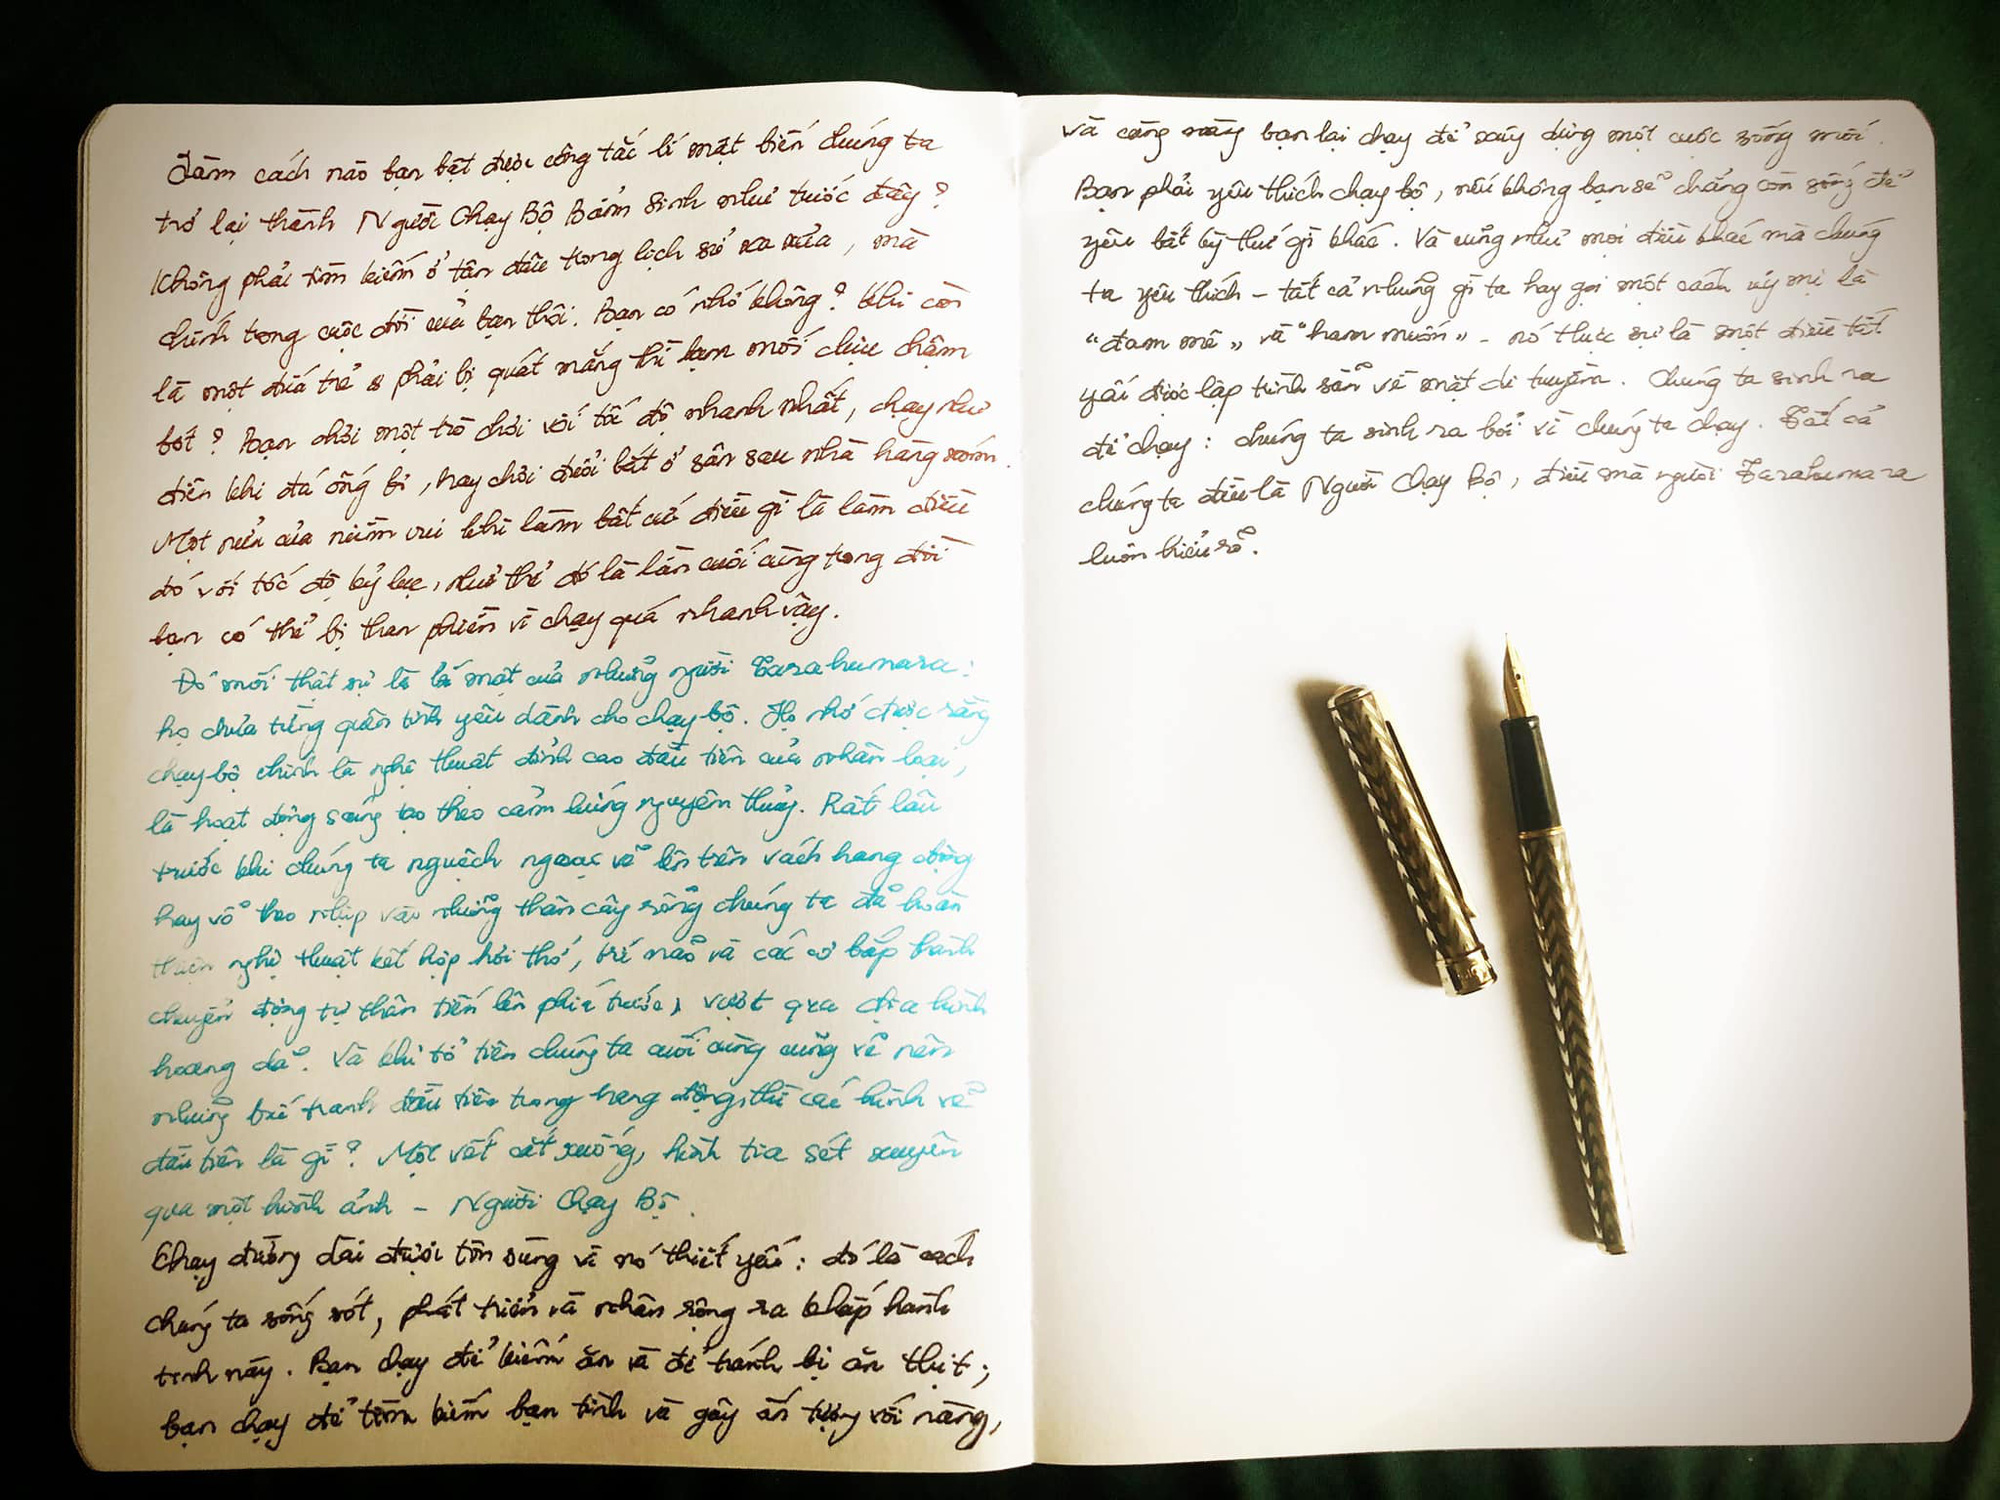 Làm cách nào bạn bật được công tắc bí mật biến chúng ta
trở lại thành Người Chạy Bộ Bẩm Sinh như trước đây?
Không phải tìm kiếm ở tận đâu trong lịch sử xa xưa, mà
chính trong cuộc đời của bạn thôi. Bạn có nhớ không? Khi còn
là một đứa trẻ phải bị quát mắng thì bạn mới chịu chậm
bớt? Bạn chơi một trò chơi với tốc độ nhanh nhất, chạy như
điên khi đá ống bơ, hay chơi đuổi bắt ở sân sau nhà hàng xóm.
Một nửa của niềm vui khi làm bất cứ điều gì là làm điều
đó với tốc độ kỷ lục, như thể đó là lần cuối cùng trong đời
bạn có thể bị than phiền vì chạy quá nhanh vậy.
Đó mới thật sự là bí mật của những người Tarahumara:
họ chưa từng quên tình yêu dành cho chạy bộ. Họ nhớ được rằng
chạy bộ chính là nghệ thuật đỉnh cao đầu tiên của nhân loại,
là hoạt động sáng tạo theo cảm hứng nguyên thủy. Rất lâu
trước khi chúng ta nguệch ngoạc vẽ lên trên vách hang động
hay vỗ theo nhịp vào những thân cây rỗng chúng ta đã hoàn
thiện nghệ thuật kết hợp hơi thở, trí não và các cơ bắp thành
chuyển động tự thân tiến lên phía trước, vượt qua địa hình
hoang dã. Và khi tổ tiên chúng ta cuối cùng cũng vẽ nên
những bức tranh đầu tiên trong hang động, thì các hình vẽ
đầu tiên là gì? Một vết cắt xuống, hình tia sét xuyên
qua một hình ảnh - Người Chạy Bộ.
Chạy đường dài được tôn sùng vì nó thiết yếu: đó là cách
chúng ta sống sót, phát triển và nhân rộng ra khắp hành
tinh này. Bạn chạy để kiếm ăn và để tránh bị ăn thịt;
bạn chạy để tìm kiếm bạn tình và gây ấn tượng với nàng,
và cùng nàng bạn lại chạy để xây dựng một cuộc sống mới.
Bạn phải yêu thích chạy bộ, nếu không bạn sẽ chẳng còn sống để
yêu bất kỳ thứ gì khác. Và cũng như mọi điều khác mà chúng
ta yêu thích - tất cả những gì ta hay gọi một cách ủy mị là
"đam mê" và "ham muốn" - nó thực sự là một điều tất
yếu được lập trình sẵn về mặt di truyền. Chúng ta sinh ra
để chạy: chúng ta sinh ra bởi vì chúng ta chạy. Tất cả
chúng ta đều là Người Chạy Bộ, điều mà người Tarahumara
luôn hiểu rõ.